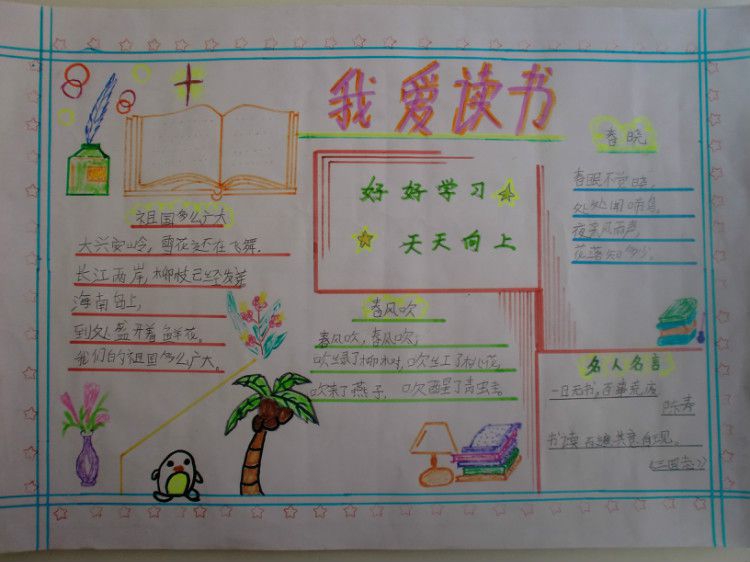 我爱读书
祖国多么广大
大兴安岭，雪花还在飞舞.
长江两岸，柳枝已经发芽
海南岛上，
到处盛开着鲜花。
我们的祖国多么广大。
好好学习
天天向上
春风吹
春风吹，春风吹，
吹绿了柳树，吹红了桃花，
吹来了燕子，吹醒了青蛙。
春晓
春眠不觉晓，
处处闻啼鸟，
夜来风雨声，
花落知多少，
名人名言
一日无书，百事荒废
陈寿
书读百遍其意自现。
《三国志》